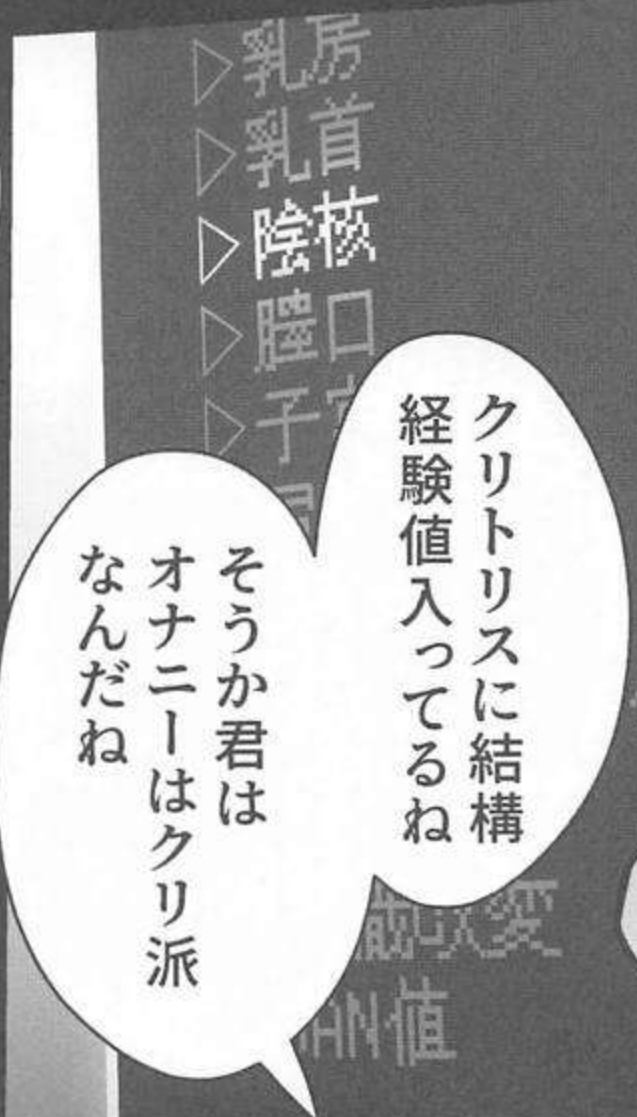 ▷乳房
▷乳首
▷陰核
▷膣口
▷子
クリトリスに結構
経験値入ってるね
そうか君は
オナニーはクリ派
なんだね
改変
値